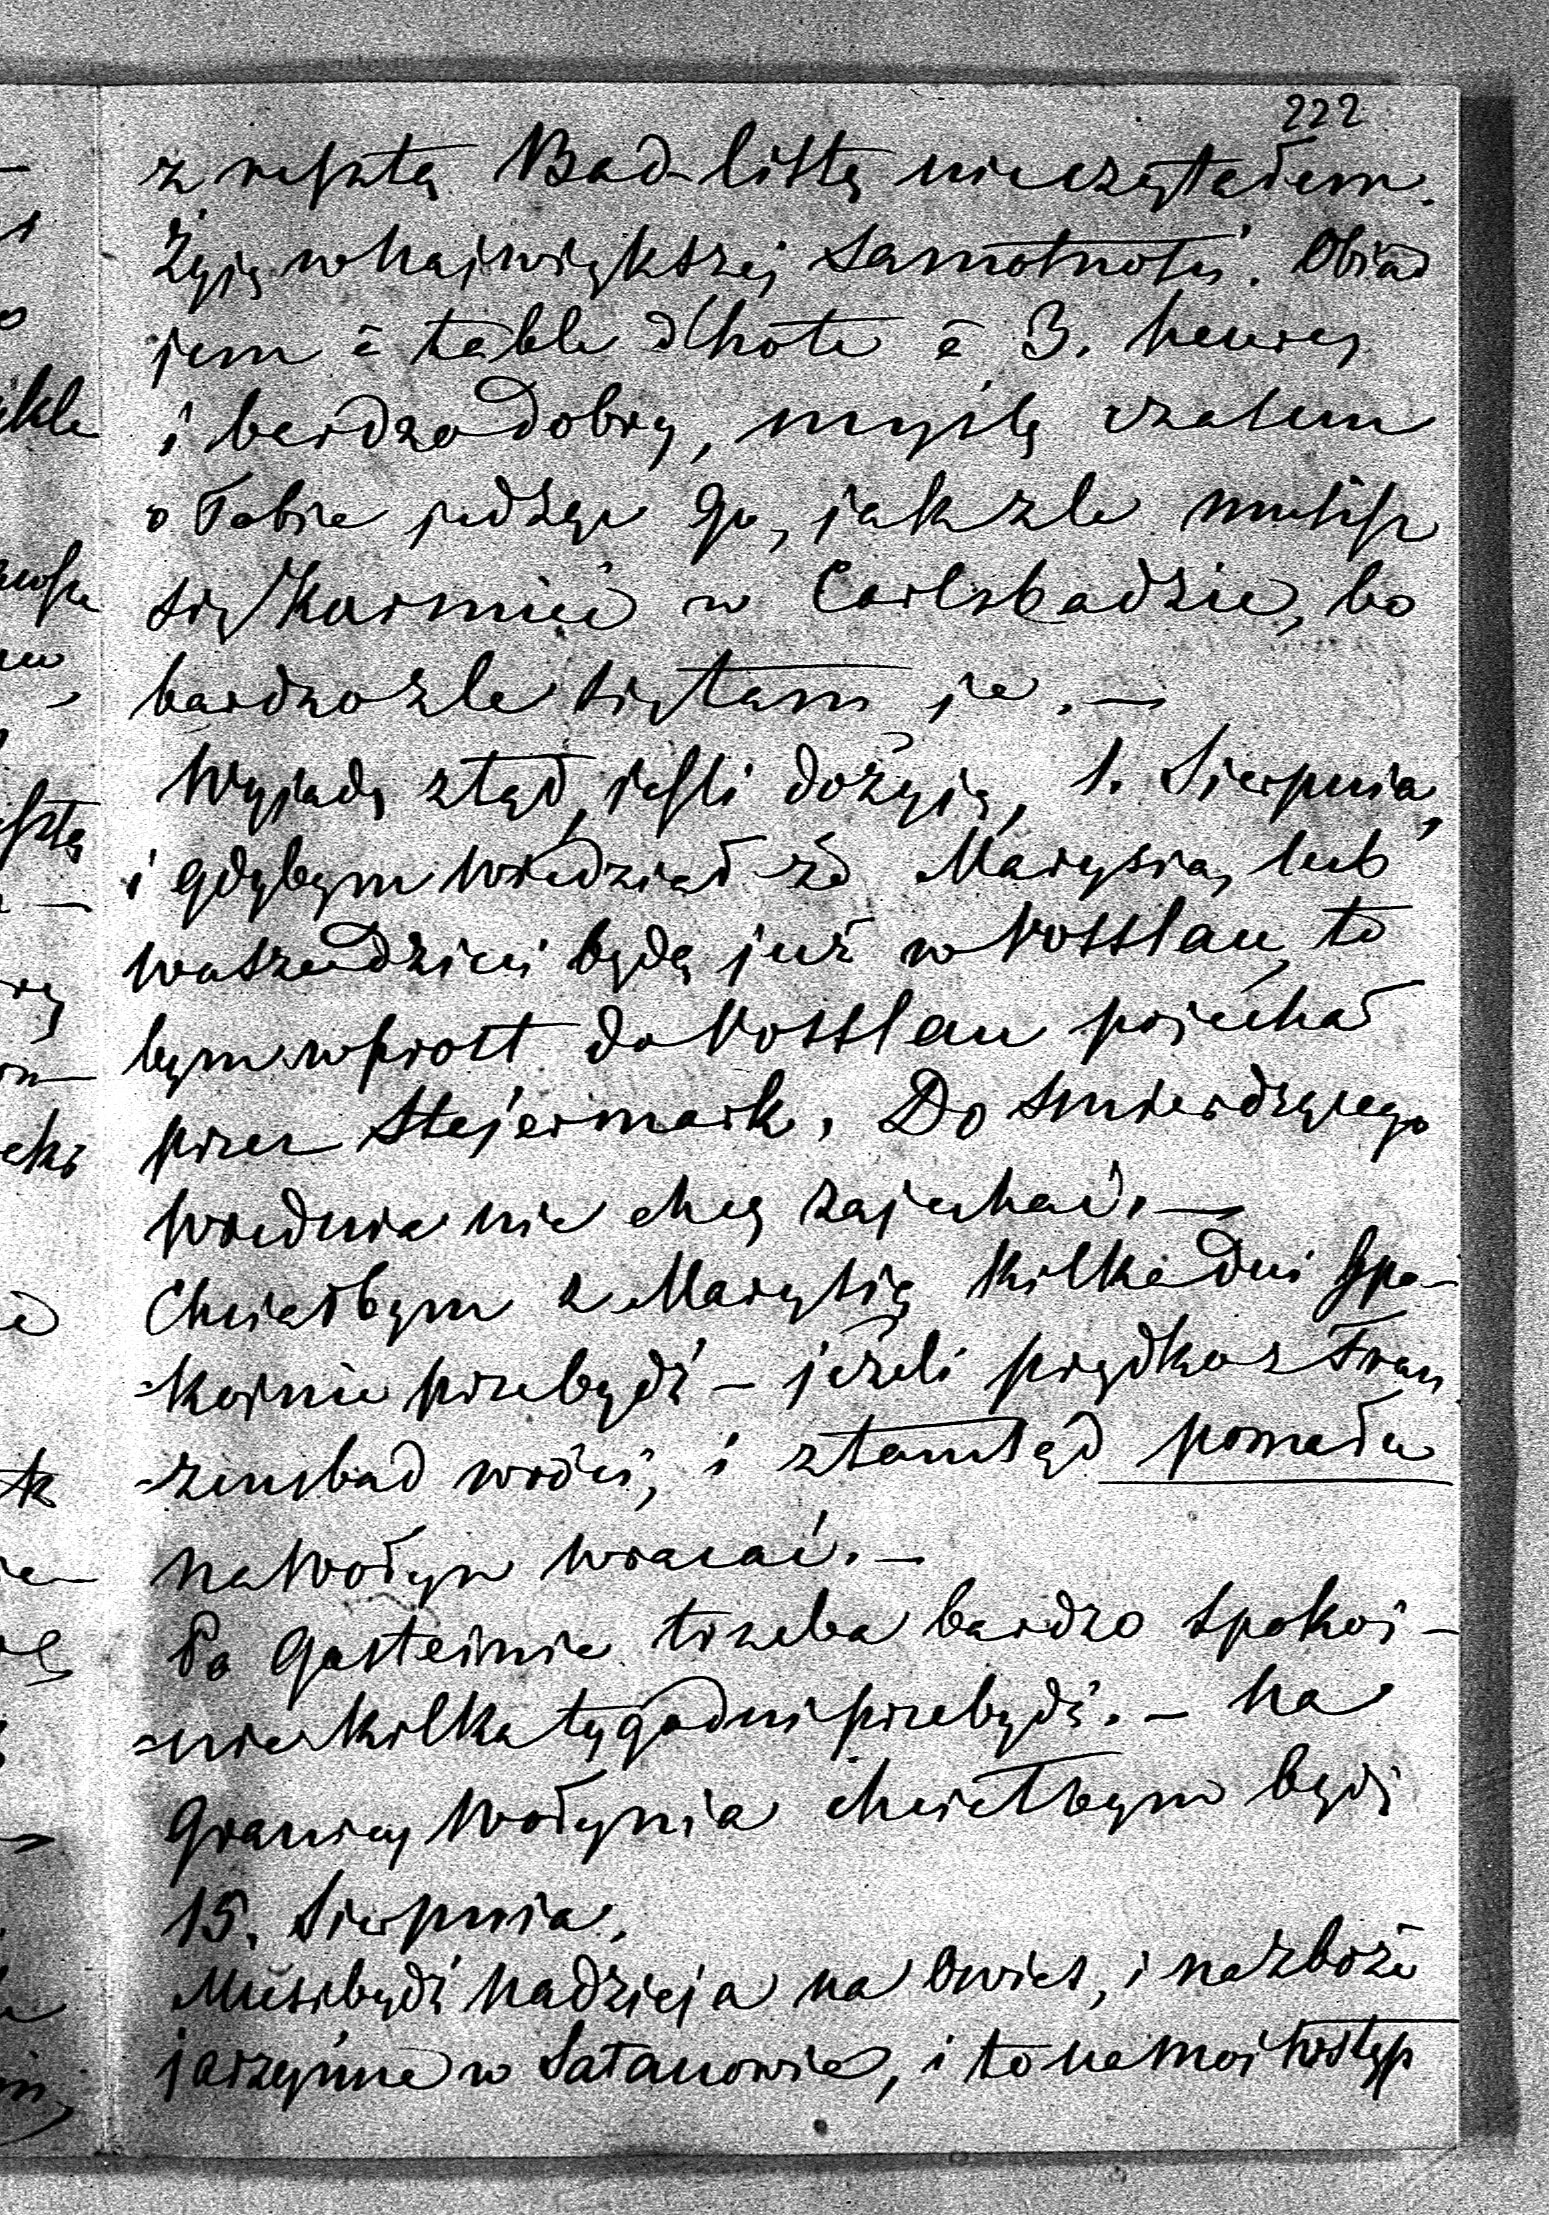 222
z resztą Bad-listę nieczytałem.
Żyję w największej samotności. Obiad
jem à table d'hote à 3. heures
i bardzo dobry, myślę czasem
o Tobie jedząc go, jak zle musisz
się karmić w Carlsbadzie, bo
bardzo zle się tam je. —
Wyjadę ztąd, jesli dożyję, 1. Sierpnia,
i gdybym wiedział że Marysia, lub
wasze dzieci będą już w Vosslau, to
bym wprost do Vosslau pojechał
przez Stejermark. Do smierdzącego
Wiednia nie chcę zajechać. —
Chciałbym z Marysią kilka dni spo-
=kojnie przebydź – jeżeli prędko z Fran
=zensbad wróci, i ztamtąd pomału
na Wołyn wracać. —
Po Gasteinie trzeba bardzo spokoi-
=nie kilka tygodni przebydź. – Na
Granicy Wołynia chciałbym bydź
15. Sierpnia.
Musi bydź nadzieja na Owies, i na zboże
jarzynne w Satanowie, i to na moi wstęp